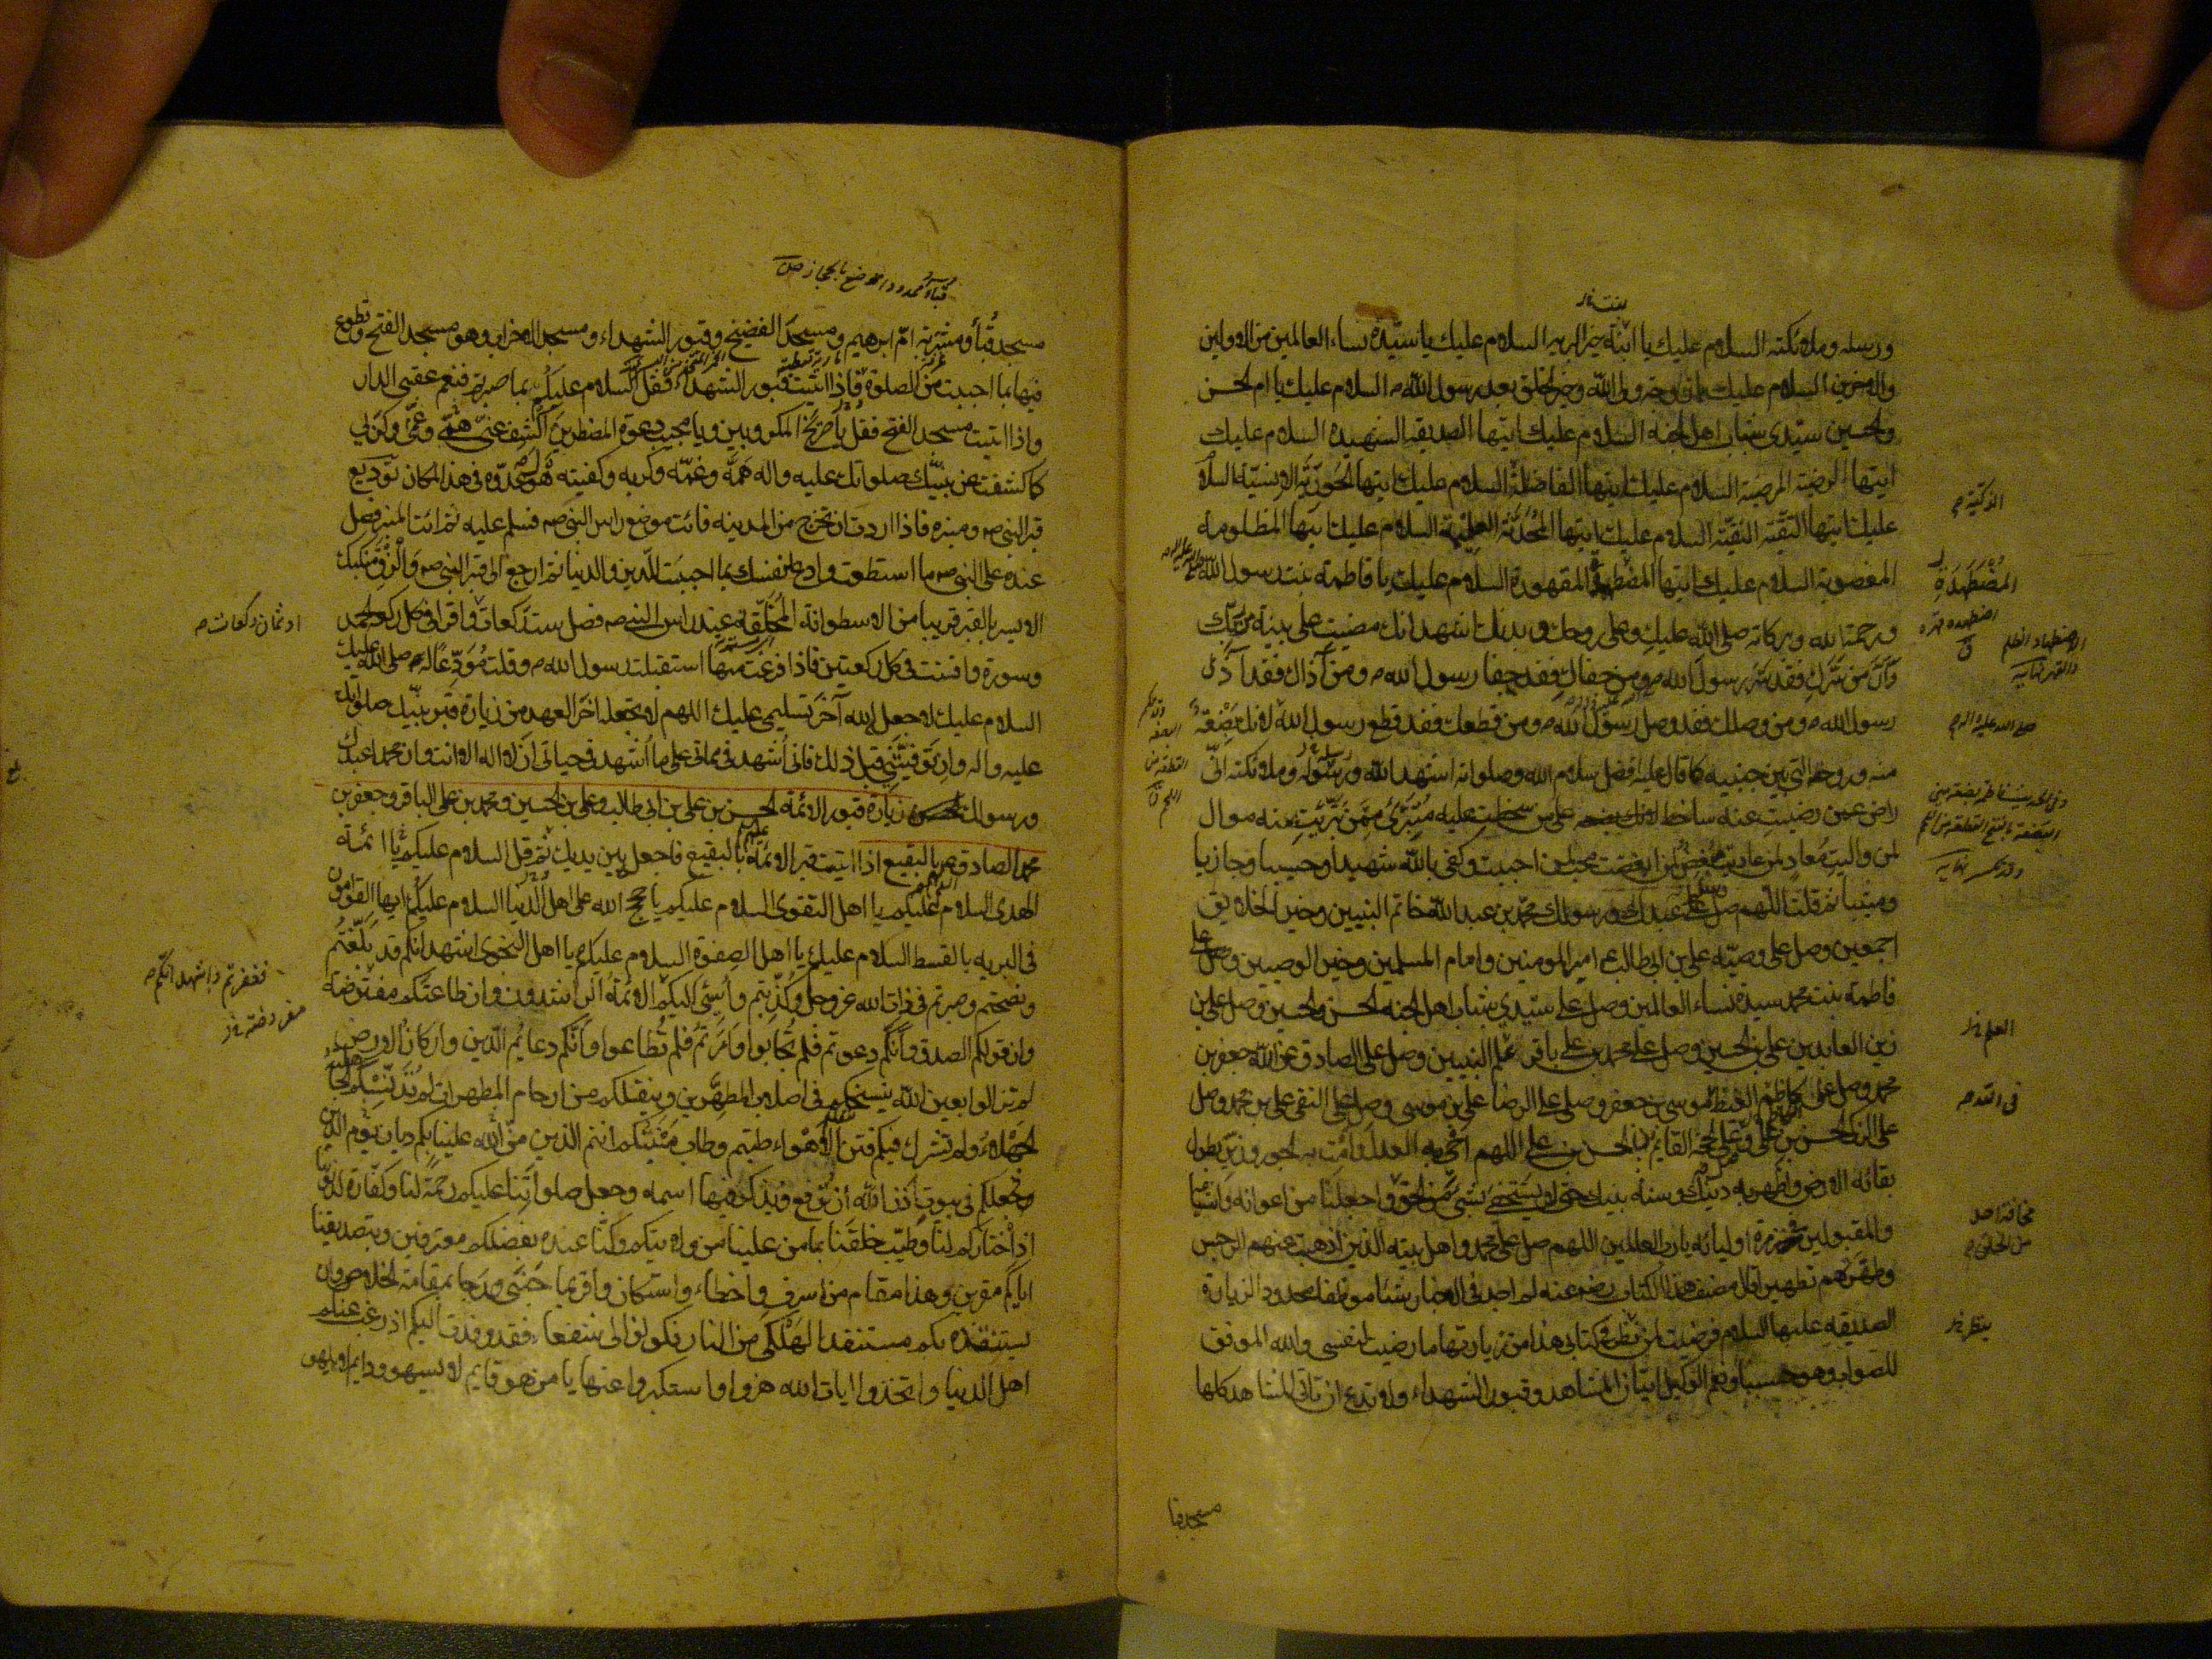 ورسله وملائكته السلام عليك يا ابنة خير البريه السلام عليك يا سيّدة نساء العالمين من الاولين
والاخرين السلام عليك يا زوجة ولي الله وخير الخلق بعد رسول الله ص السلام عليك يا ام الحسن
والحسين سيّدي شباب اهل الجنه السلام عليك ايتها الصديقة الشهيدة السلام عليك
ايتها الرضية المرضية السلام عليك ايتها الفاضلة السلام عليك ايتها الحوريّة الانسيّة السلام
عليك ايتها التقية النقيّة السلام عليك ايتها المحدّثة العليمة السلام عليك ايتها المظلومة
المغصوبة السلام عليك ايتها المضطهدة المقهورة السلام عليك يا فاطمة بنت رسول الله
ورحمة الله وبركاته صلى الله عليك وعلى روحك وبدنك اشهد انك مضيت على بينة من ربك
وانّ من سرّك فقد سرّ رسول الله ص ومن جفاك فقد جفا رسول الله ص ومن آذاك فقد آذى
رسول الله ص ومن وصلك فقد وصل رسول الله ص ومن قطعك فقد قطع رسول الله لانك بضعة
منه وروحه التي بين جنبيه كما قال عليه افضل سلام الله وصلواته اشهد الله ورسوله وملائكته انّي
راض عمن رضيت عنه ساخط على من سخطت عليه متبرّئ ممّن تبرّئت منه موال
لمن واليت معاد لمن عاديت مبغض لمن ابغضت محب لمن احببت وكفى بالله شهيدا وحسيبا وجازيا
ومثيبا ثم قلت اللهم صل على عبدك ورسولك محمد بن عبد الله خاتم النبيين وخير الخلايق
اجمعين وصل على وصيّه علي بن ابي طالب امير المومنين وامام المسلمين وخير الوصيين وصل على
فاطمة بنت محمد سيدة نساء العالمين وصل على سيّدي شباب اهل الجنه الحسن والحسين وصل على
زين العابدين علي بن الحسين وصل على محمد بن علي باقر علم النبيين وصل على الصادق عن الله جعفر بن
محمد وصل على كاظم الغيظ موسى بن جعفر وصل على الرضا علي بن موسى وصل على التقي
بقائه الارض واظهر به دينك وسنة نبيك حتى لا يستخفي بشئ من الحق واجعلنا من اعوانه واشياعه
والمقبولين في زمرة اوليائه يا رب العالمين اللهم صل على محمد واهل بيته الذين اذهبت عنهم الرجس
وطهّرتهم تطهيرا قال مصنف هذا الكتاب رضي عنه لم اجد في الاخبار شيئا موظفا محدودا لزيارة
الصديقه عليها السلام فرضيت لمن نظر في كتابي هذا من زيارتها ما رضيت لنفسي والله الموفق
للصواب وهو حسبنا ونعم الوكيل اتيان المشاهد وقبور الشهداء ولا تدع ان تاتي المشاهد كلها
مسجد قبا
الزكية
المضطهدة
العلم
في الله
ينظر
مسجد قبا ومشربة امّ ابرهيم ومسجد الفضيخ وقبور الشهداء ومسجد الاحزاب وهو مسجد الفتح وتطوع
فيها بما احببت من الصلوة فاذا اتيت قبور الشهداء فقل السلام عليكم بما صبرتم فنعم عقبى الدار
واذا اتيت مسجد الفتح فقل يا صريخ المكروبين ويا مجيب دعوة المضطرين اكشف عنّي همّي وغمّي وكربي
كما كشفت عن نبيّك صلواتك عليه واله همّه وغمّه وكربه وكفيته هول عدوّه في هذا المكان توديع
قبر النبي ص ومنبره فاذا اردت ان تخرج من المدينه فائت موضع راس النبي ص فسلم عليه ثم ائت المنبر وصل
عنده على النبي ص ما استطعت وادع لنفسك بما احببت للدّين والدنيا ثم ارجع الى قبر النبي ص والزق منكبك
الايسر بالقبر قريبا من الاسطوانة المخلّقه عند راس النبي ص فصل ست ركعات واقرا في كل ركعة الحمد
وسورة واقنت في كل ركعتين فاذا فرغت منها استقبلت رسول الله ص وقلت مودّعا له صلى الله عليك
السلام عليك لا جعل الله آخر تسليمي عليك اللهم لا تجعله اخر العهد من زيارة قبر نبيّك صلواتك
عليه واله وان توفيتني قبل ذلك فاني اشهد في مماتي على ما اشهد في حياتي ان لا اله الا انت وان محمدا عبدك
ورسولك زيارة قبور الائمه الحسن بن علي بن ابي طالب وعلي بن الحسين ومحمد بن علي الباقر وجعفر بن
محمد الصادق بالبقيع اذا اتيت قبر الائمة بالبقيع فاجعله بين يديك ثم قل السلام عليكم يا ائمة
الهدى السلام عليكم يا اهل التقوى السلام عليكم يا حجج الله على اهل الدنيا السلام عليكم ايها القوامون
في البريه بالقسط السلام عليكم يا اهل الصفوة السلام عليكم يا اهل النجوى اشهد انكم قد بلّغتم
ونصحتم وصبرتم في ذات الله عز وجل وكذّبتم واسيئ اليكم الائمة الراشدون وان طاعتكم مفترضه
وان قولكم الصدق وانّكم دعوتم فلم تجابوا وامرتم فلم تطاعوا وانّكم دعايم الدين واركان الارض
لم تزالوا بعين الله ينسخكم في اصلاب المطهّرين وينقلكم من ارحام المطهرات لم تدنّسكم الجاهلية
الجهلاء ولم تشرك فيكم فتن الاهواء طبتم وطاب منبتكم انتم الذين منّ الله علينا بكم ديان يوم الدين
فجعلكم في بيوت اذن الله ان ترفع ويذكر فيها اسمه وجعل صلواتنا عليكم رحمة لنا وكفّارة لذنوبنا
اذ اختاركم لنا وطيّب خلقنا بما من علينا من ولايتكم وكنّا عنده بفضلكم معترفين وبتصديقنا
اياكم مقرين وهذا مقام من اسرف واخطاء واستكان واقر بما جنى ورجا بمقامه الخلاص وان
يستنقذه بكم مستنقذ الهلكى من النار فكونوا لي شفعاء فقد وفدت اليكم اذ رغب عنكم
اهل الدنيا واتخذوا ايات الله هزوا واستكبروا عنها يا من هو قايم لا يسهو ودايم لا يلهو
او ثمان ركعات